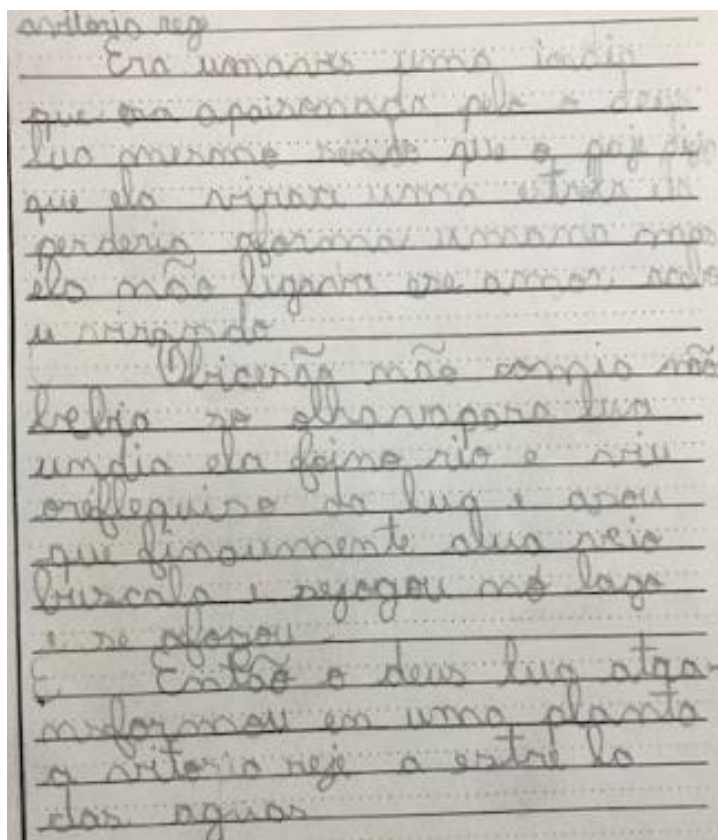 avitoria reg
Era umaves uma india
que era apaixonada pelo o deus
lua mesmo sendo que o paje dise
que ela virari uma estrela
perderia aforma umana mas
ela não ligava ese amor
u virando
Obicesão não comia não
bebia so olhavapara lua
umdia ela foino rio e viu
oreflequiso da lua e axou
que finaumente alua veio
buscala i sejogou no lago
i se afogou
Então o deus lua atra
nsformou em uma planta
a vitoria reje a estre la
das aguas